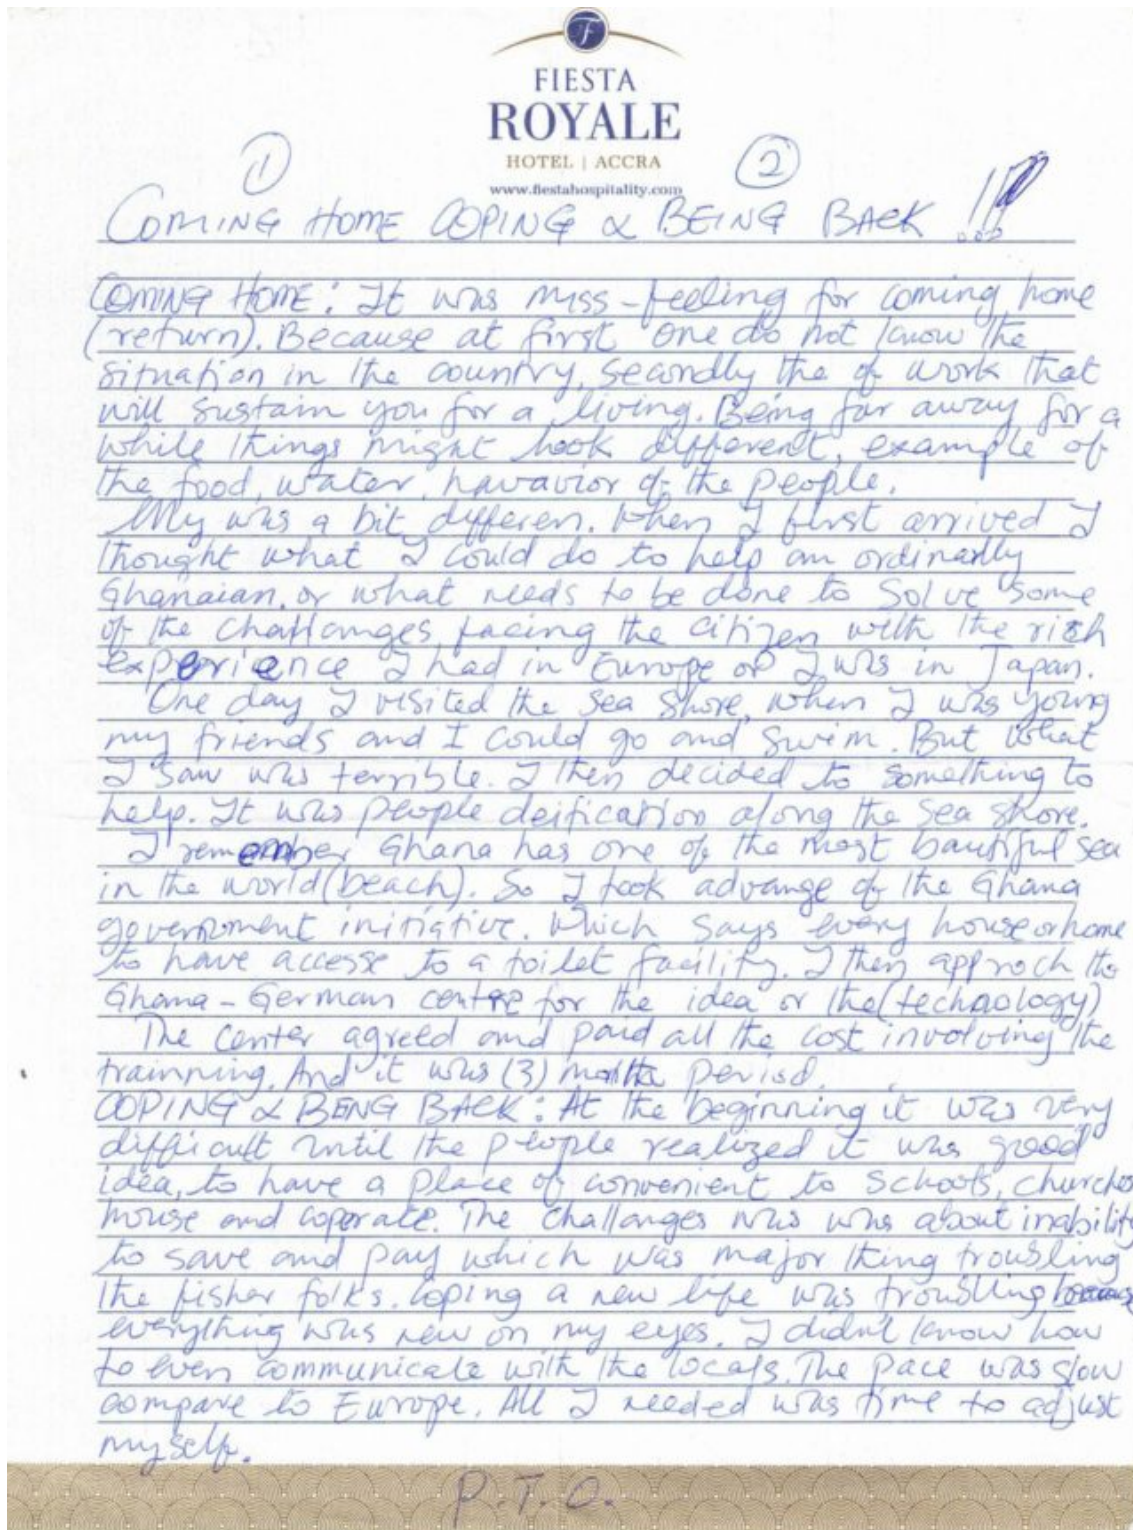 F
FIESTA
ROYALE
HOTEL | ACCRA
www.fiestahospitality.com
1 2
COMING HOME COPING & BEING BACK !!!
COMING HOME: It was miss-feeling for coming home
(return). Because at first one do not know the
situation in the country, secondly the of work that
will sustain you for a living. Being far away for a
while things might look different, example of
the food, water, havavior of the people.
My was a bit differen. When I first arrived I
thought what I could do to help an ordinarlly
Ghanaian, or what needs to be done to solve some
of the challanges facing the citizen with the rich
experience I had in Europe or I was in Japan.
One day I visited the sea shore, when I was young
my friends and I could go and swim. But what
I saw was terrible. I then decided to something to
help. It was people deification along the sea shore.
I remember Ghana has one of the most beautiful sea
in the world (beach). So I took advange of the Ghana
government initiative. Which says every house or home
to have accesse to a toilet facility. I then approch the
Ghana-German centre for the idea or the (technology)
The center agreed and paid all the cost involving the
trainning. And it was (3) months period.
COPING & BENG BACK: At the beginning it was very
difficult until the people realized it was good
idea, to have a place of convenient to schools, churches
house and coporate. The challanges was about inability
to save and pay which was major thing troubling
the fisher folks. Coping a new life was troubling because
everything was new on my eyes. I didn't know how
to even communicate with the locals. The pace was slow
compare to Europe. All I needed was time to adjust
myself.
P.T.O.